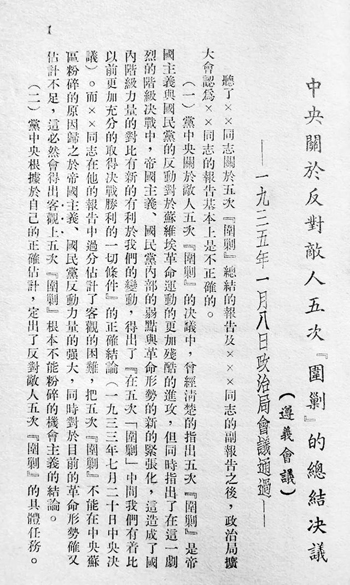 中央關於反對敵人五次『圍剿』的總結決議
（遵義會議）
——一九三五年一月八日政治局會議通過——
聽了××同志關於五次『圍剿』總結的報告及×××同志的副報告之後，政治局擴
大會認爲××同志的報告基本上是不正確的。
（一）黨中央關於敵人五次『圍剿』的決議中，曾經清楚的指出五次『圍剿』是帝
國主義與國民黨的反動對於蘇維埃革命運動的更加殘酷的進攻，但同時指出了在這一劇
烈的階級決戰中，帝國主義、國民黨內部的弱點與革命形勢的新的緊張化，這造成了國
內階級力量的對比有新的有利於我們的變動，得出了『在五次「圍剿」中間我們有着比
以前更加充分的取得決戰勝利的一切條件』的正確結論（一九三三年七月二十日中央決
議）。而××同志在他的報告中過分估計了客觀的困難，把五次『圍剿』不能在中央蘇
區粉碎的原因歸之於帝國主義、國民黨反動力量的強大，同時對於目前的革命形勢確又
估計不足，這必然會得出客觀上五次『圍剿』根本不能粉碎的機會主義的結論。
（二）黨中央根據於自己的正確估計，定出了反對敵人五次『圍剿』的具體任務。
1